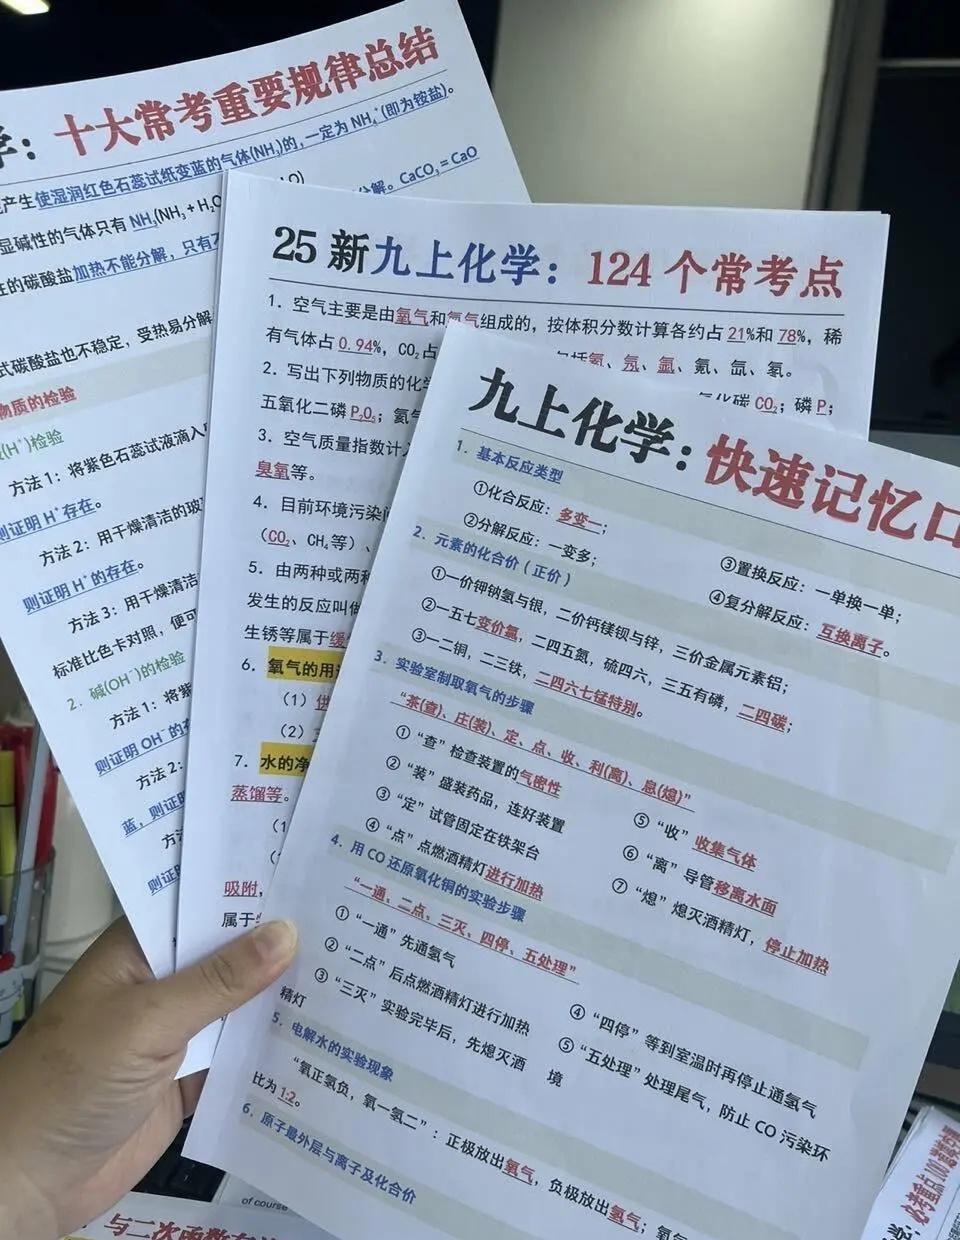 学：十大常考重要规律总结
产生使湿润红色石蕊试纸变蓝的气体(NH₃)的，一定为 NH₄⁺(即为铵盐)。
显碱性的气体只有 NH₃(NH₃+H₂O
的碳酸盐加热不能分解，只有不
分解。CaCO₃=CaO
式碳酸盐也不稳定，受热易分解
物质的检验
(H⁺)检验
方法1：将紫色石蕊试液滴入
则证明 H⁺存在。
方法2：用干燥清洁的玻
则证明 H⁺的存在。
方法3：用干燥清洁
标准比色卡对照，便可
2．碱(OH⁻)的检验
方法1：将紫
则证明 OH⁻的存
方法2：
蓝，则证明
方法
则证
25 新九上化学：124 个常考点
1．空气主要是由氧气和氮气组成的，按体积分数计算各约占 21%和 78%，稀
有气体占 0.94%，CO₂占
包括氦、氖、氩、氪、氙、氡。
2．写出下列物质的化学
氧化碳 CO₂；磷 P；
五氧化二磷 P₂O₅；氦气
3．空气质量指数计入
臭氧等。
4．目前环境污染问
（CO₂、CH₄等）、
5．由两种或两种
发生的反应叫做
生锈等属于缓
6．氧气的用途
（1）供
（2）
7．水的净
蒸馏等。
（1
（
吸附，
属于
九上化学：快速记忆口
1．基本反应类型
①化合反应：多变一；
②分解反应：一变多；
③置换反应：一单换一单；
④复分解反应：互换离子。
2．元素的化合价（正价）
①一价钾钠氢与银，二价钙镁钡与锌，三价金属元素铝；
②一五七变价氯，二四五氮，硫四六，三五有磷，二四碳；
③一二铜，二三铁，二四六七锰特别。
3．实验室制取氧气的步骤
“茶(查)、庄(装)、定、点、收、利(离)、息(熄)”
①“查”检查装置的气密性
②“装”盛装药品，连好装置
③“定”试管固定在铁架台
④“点”点燃酒精灯进行加热
⑤“收”收集气体
⑥“离”导管移离水面
⑦“熄”熄灭酒精灯，停止加热
4．用 CO 还原氧化铜的实验步骤
“一通、二点、三灭、四停、五处理”
①“一通”先通氢气
②“二点”后点燃酒精灯进行加热
③“三灭”实验完毕后，先熄灭酒
精灯
④“四停”等到室温时再停止通氢气
⑤“五处理”处理尾气，防止 CO 污染环
境
5．电解水的实验现象
“氧正氢负，氧一氢二”：正极放出氧气，负极放出氢气；氧气
比为 1:2。
6．原子最外层与离子及化合价
of course
与二次函数